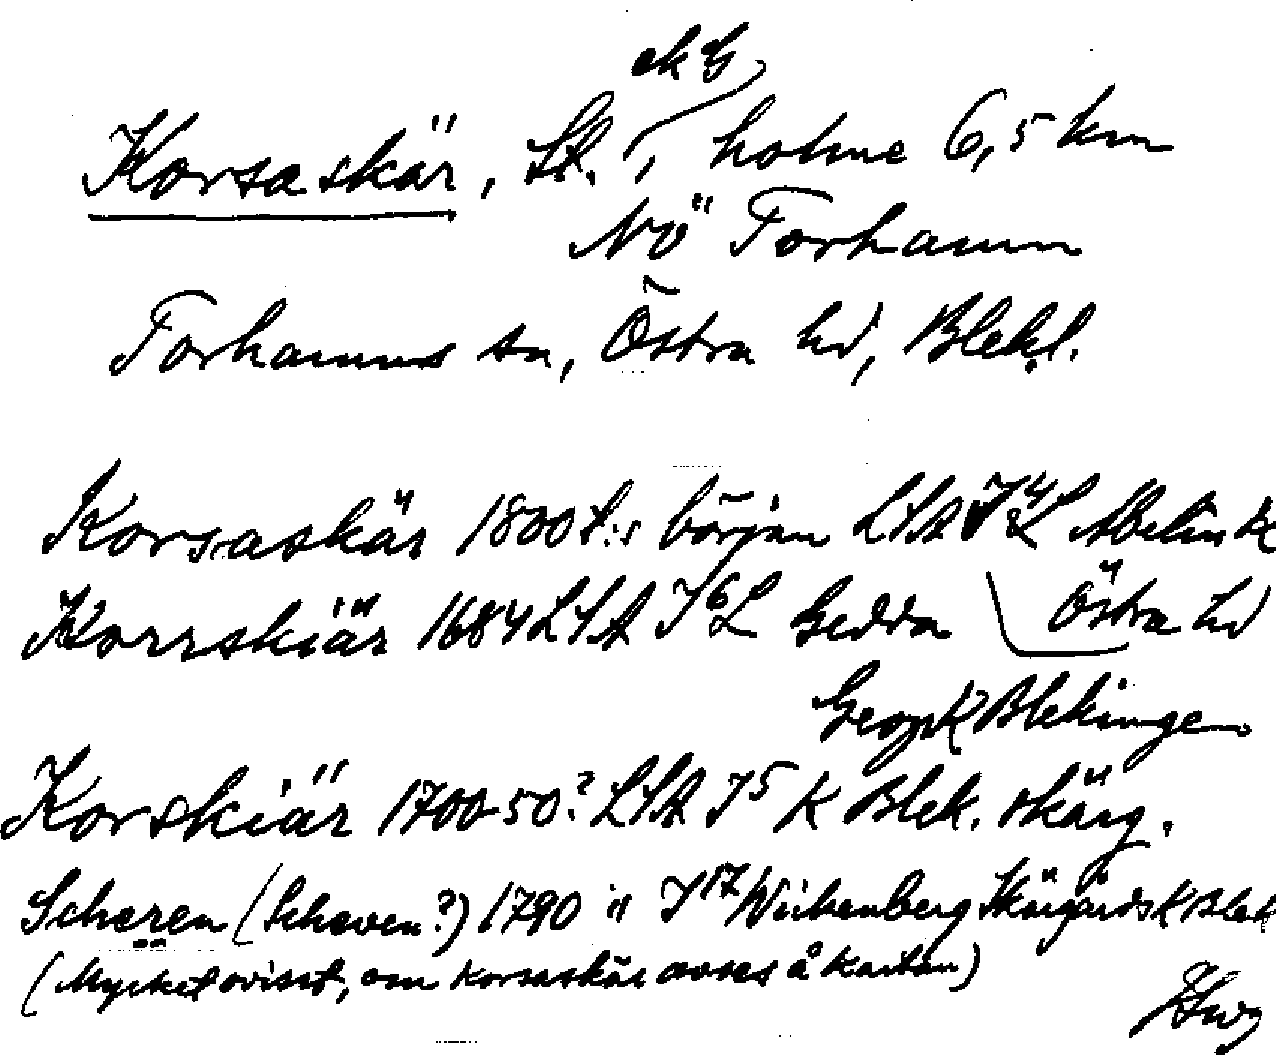 ek G
Korsaskär, St., holme 6,5 km
NÖ Torhamn
Torhamns sn, Östra hd, Blek.
Korsaskär 1800 t:s början LSA J4L Abelin K
Korrskiär 1684 LSA J6L Gedda Östra hd
Geogr K Blekinge
Korskiär 1700-50? LSA J5 K Blek. skärg.
Scheren (Scheven?) 1790 " J17 Wirkenberg Skärgårds K Blek
(Mycket ovisst, om Korsaskär avses å kartan)